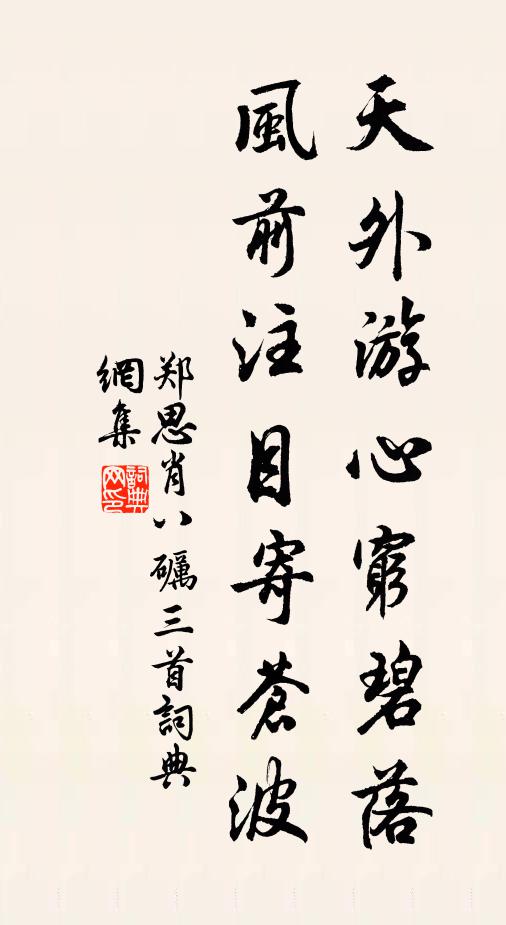 天外游心窮碧落
風前注目寄蒼波
郑思肖八礪三首詞典
網集
詞典
网印